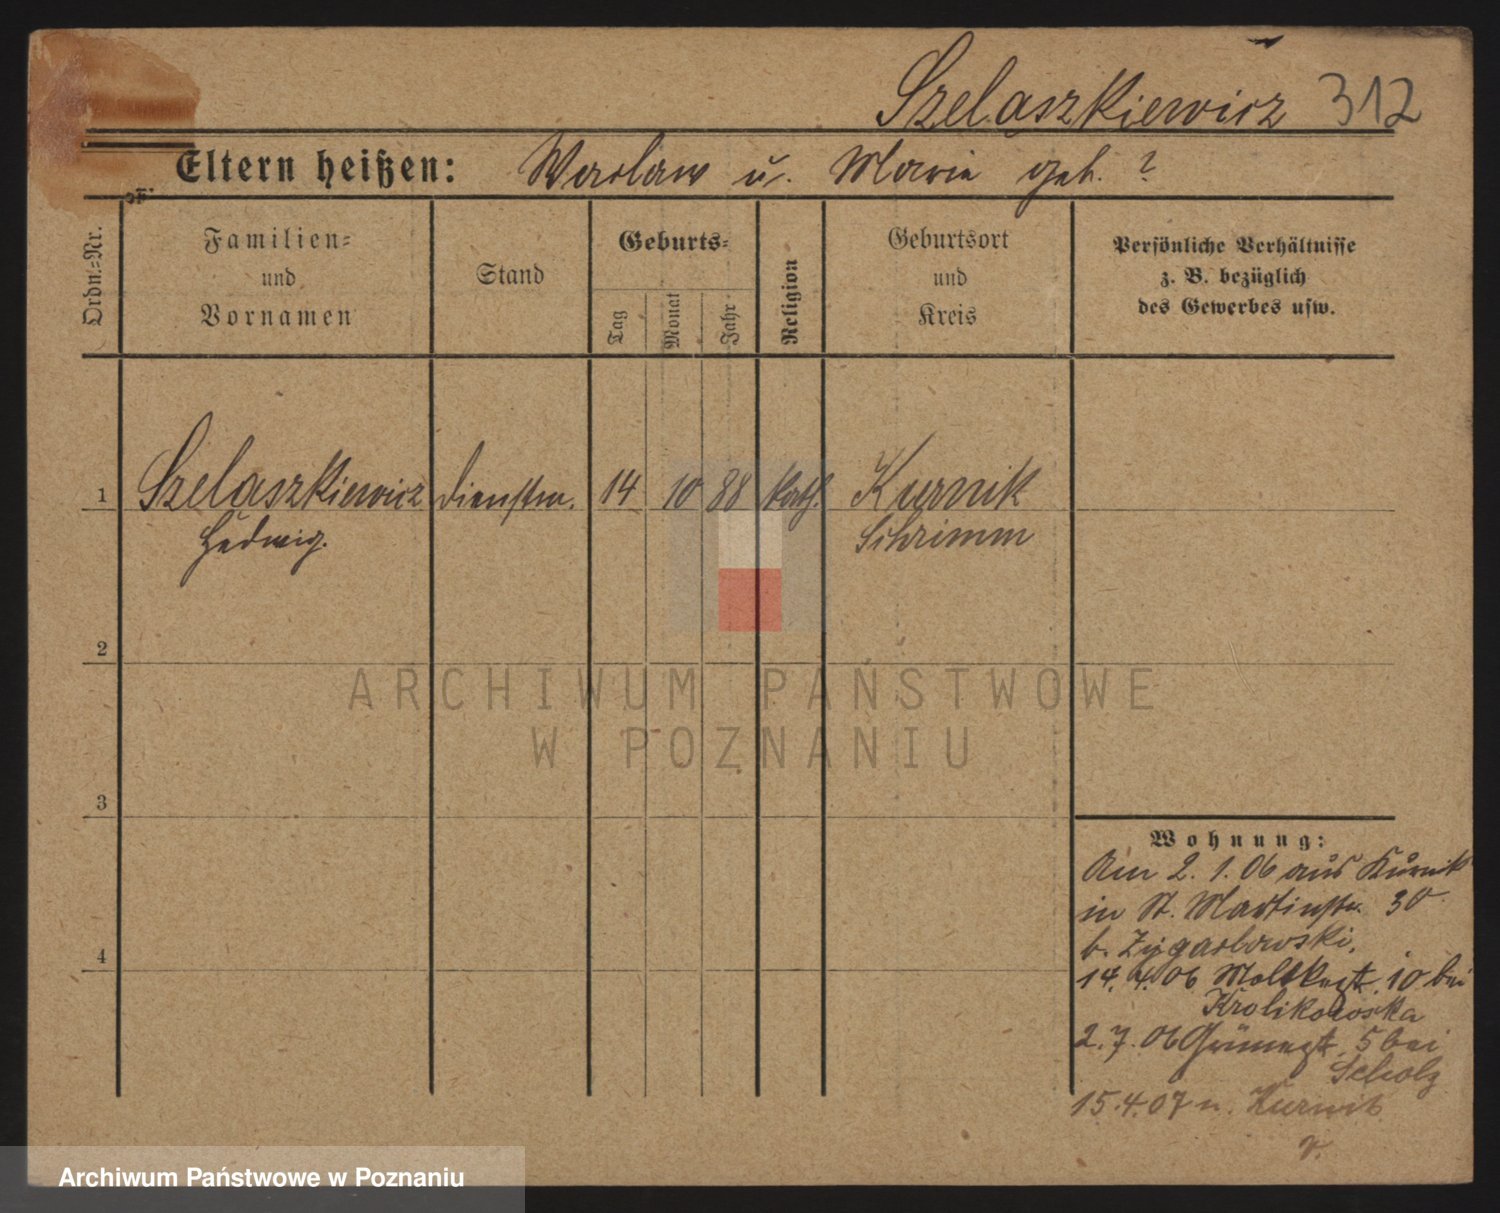 Szelaszkiewicz 312
Eltern heißen: Waclaw u. Marie geb. ?
Ordn.-Nr.
Familien-
und
Vornamen
Stand
Geburts-
Tag
Monat
Jahr
Religion
Geburtsort
und
Kreis
Persönliche Verhältnisse
z. B. bezüglich
des Gewerbes usw.
1 Szelaszkiewicz Dienstm. 14 10 88 kath. Kurnik
Hedwig. Schrimm
2
ARCHIWUM PAŃSTWOWE
W POZNANIU
3
Wohnung:
Am 2. 1. 06 aus Kurnik
in St. Martinstr. 30
b. Zygarlowski.
4
14. 4. 06 Moltkest. 10 bei
Krolikowska
2. 7. 06 Grünest. 5 bei
Scholz
15. 4. 07 n. Kurnik
Archiwum Państwowe w Poznaniu